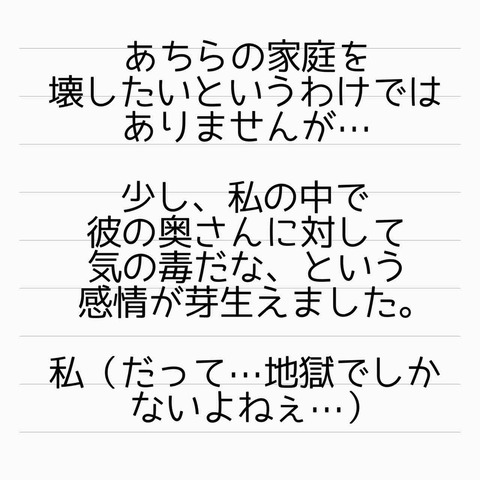 あちらの家庭を
壊したいというわけでは
ありませんが…
少し、私の中で
彼の奥さんに対して
気の毒だな、という
感情が芽生えました。
私（だって…地獄でしか
ないよねぇ…）